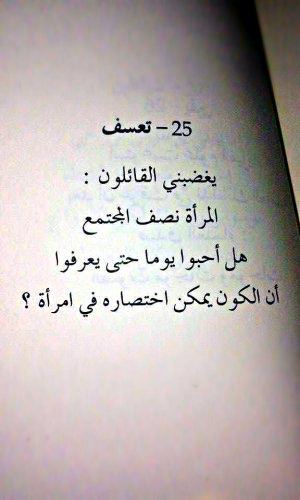 25 – تعسف
يغضبني القائلون :
المرأة نصف المجتمع
هل أحبوا يوما حتى يعرفوا
أن الكون يمكن اختصاره في امرأة ؟